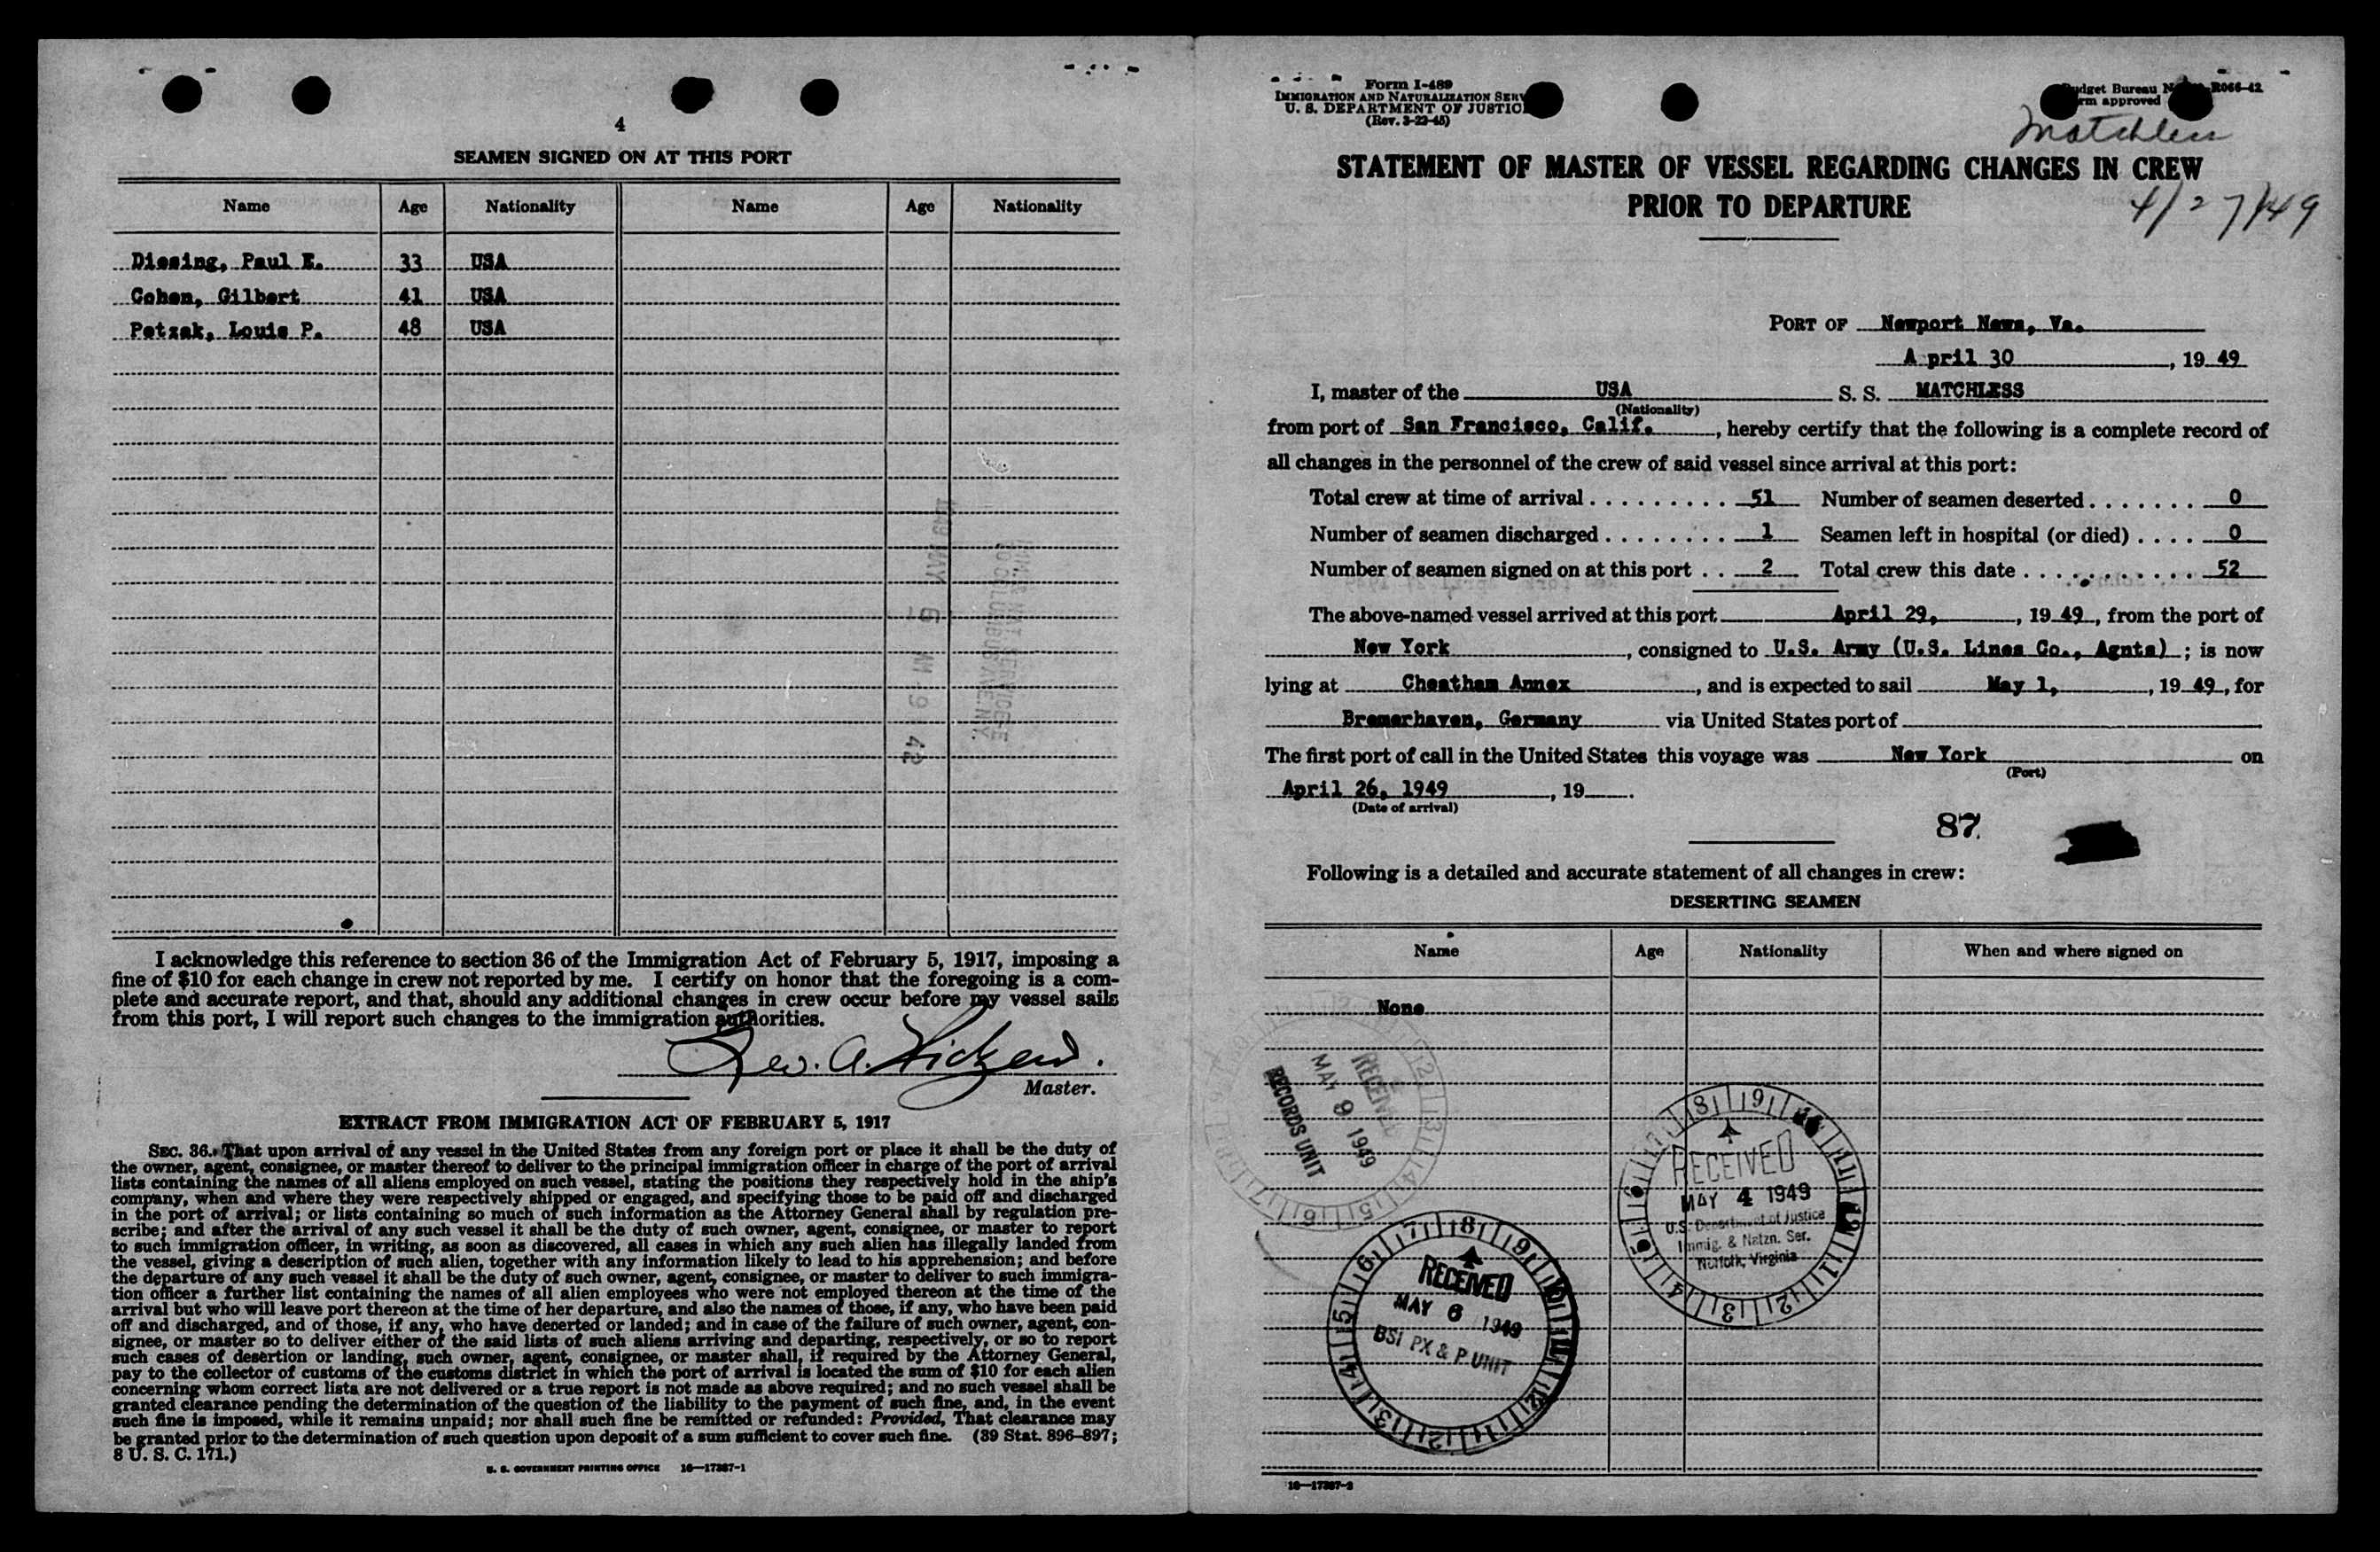 4
SEAMEN SIGNED ON AT THIS PORT
Name Age Nationality Name Age Nationality
Diesing, Paul E. 33 USA
Cohen, Gilbert 41 USA
Petzak, Louis P. 48 USA
1949 MAY 6 AM 9 42
I acknowledge this reference to section 36 of the Immigration Act of February 5, 1917, imposing a
fine of $10 for each change in crew not reported by me. I certify on honor that the foregoing is a com-
plete and accurate report, and that, should any additional changes in crew occur before my vessel sails
from this port, I will report such changes to the immigration authorities.
Master.
EXTRACT FROM IMMIGRATION ACT OF FEBRUARY 5, 1917
SEC. 36. That upon arrival of any vessel in the United States from any foreign port or place it shall be the duty of
the owner, agent, consignee, or master thereof to deliver to the principal immigration officer in charge of the port of arrival
lists containing the names of all aliens employed on such vessel, stating the positions they respectively hold in the ship's
company, when and where they were respectively shipped or engaged, and specifying those to be paid off and discharged
in the port of arrival; or lists containing so much of such information as the Attorney General shall by regulation pre-
scribe; and after the arrival of any such vessel it shall be the duty of such owner, agent, consignee, or master to report
to such immigration officer, in writing, as soon as discovered, all cases in which any such alien has illegally landed from
the vessel, giving a description of such alien, together with any information likely to lead to his apprehension; and before
the departure of any such vessel it shall be the duty of such owner, agent, consignee, or master to deliver to such immigra-
tion officer a further list containing the names of all alien employees who were not employed thereon at the time of the
arrival but who will leave port thereon at the time of her departure, and also the names of those, if any, who have been paid
off and discharged, and of those, if any, who have deserted or landed; and in case of the failure of such owner, agent, con-
signee, or master so to deliver either of the said lists of such aliens arriving and departing, respectively, or so to report
such cases of desertion or landing, such owner, agent, consignee, or master shall, if required by the Attorney General,
pay to the collector of customs of the customs district in which the port of arrival is located the sum of $10 for each alien
concerning whom correct lists are not delivered or a true report is not made as above required; and no such vessel shall be
granted clearance pending the determination of the question of the liability to the payment of such fine, and, in the event
such fine is imposed, while it remains unpaid; nor shall such fine be remitted or refunded: Provided, That clearance may
be granted prior to the determination of such question upon deposit of a sum sufficient to cover such fine. (39 Stat. 896-897;
8 U. S. C. 171.)
U. S. GOVERNMENT PRINTING OFFICE 16—17387-1
Form I-489
IMMIGRATION AND NATURALIZATION SERV
U. S. DEPARTMENT OF JUSTIC
(Rev. 3-22-45)
dget Bureau N R066-42
rm approved
Matchless
STATEMENT OF MASTER OF VESSEL REGARDING CHANGES IN CREW
PRIOR TO DEPARTURE
4/27/49
PORT OF Newport News, Va.
April 30, 19 49
I, master of the USA S. S. MATCHLESS
(Nationality)
from port of San Francisco, Calif., hereby certify that the following is a complete record of
all changes in the personnel of the crew of said vessel since arrival at this port:
Total crew at time of arrival . . . . . . . . . 51 Number of seamen deserted . . . . . . . 0
Number of seamen discharged . . . . . . . . 1 Seamen left in hospital (or died) . . . . 0
Number of seamen signed on at this port . . 2 Total crew this date . . . . . . . . . . . 52
The above-named vessel arrived at this port April 29, , 19 49, from the port of
New York, consigned to U.S. Army (U.S. Lines Co., Agnts); is now
lying at Cheatham Annex, and is expected to sail May 1, , 19 49, for
Bremerhaven, Germany via United States port of
The first port of call in the United States this voyage was New York on
(Port)
April 26, 1949, 19
(Date of arrival)
87
Following is a detailed and accurate statement of all changes in crew:
DESERTING SEAMEN
Name Age Nationality When and where signed on
None
RECEIVED
MAY 9 1949
RECORDS UNIT
RECEIVED
MAY 4 1949
U.S. Department of Justice
Immig. & Natzn. Ser.
Norfolk, Virginia
RECEIVED
MAY 6 1949
BSI PX & P UNIT
16—17387-2